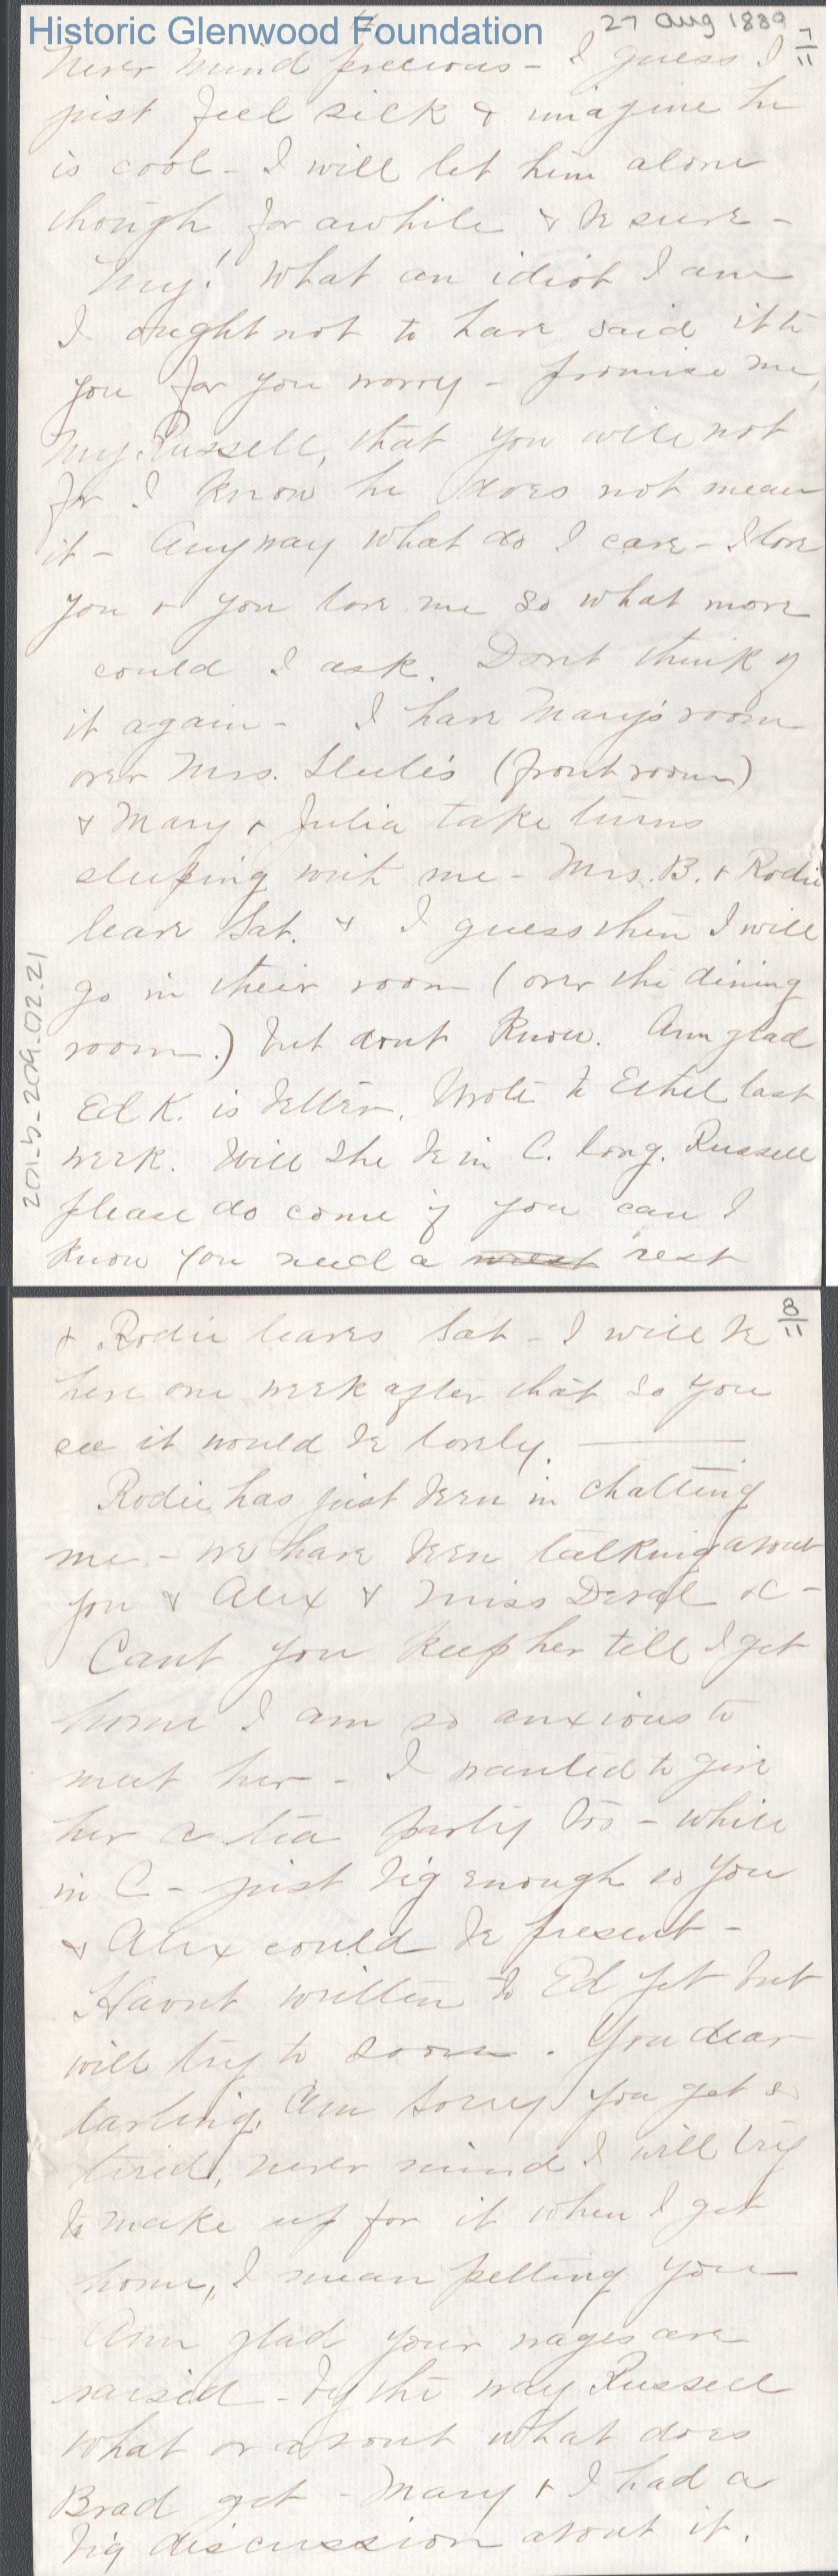 Historic Glenwood Foundation
27 Aug 1889
7/11
Never mind precious - I guess I
just feel sick & imagine he
is cool - I will let him alone
though for awhile & be sure -
My! What an idiot I am
I ought not to have said it to
you for you worry - promise me,
my Russell, that you will not
for I know he does not mean
it - Anyway what do I care - I love
you & you love me so what more
could I ask. Dont think of
it again - I have Mary's room
over Mrs. Steele's (front room)
& Mary & Julia take turns
sleeping with me - Mrs. B. & Rodie
leave Sat. & I guess then I will
go in their room (over the dining
room.) but dont know. Am glad
Ed K. is better. Wrote to Ethel last
week. Will she be in C. long. Russell
please do come if you can I
know you need a rest
201-b-209.02.21
8/11
& Rodie leaves Sat - I will be
here one week after that so you
see it would be lovely.
Rodie has just been in chatting
me - we have been talking about
you & Alex & Miss &c -
Cant you keep her till I get
home I am so anxious to
meet her - I wanted to give
her a tea party too - while
in C - just big enough so you
& Alex could be present -
Havnt written to Ed yet but
will try to soon. You dear
darling, Am sorry you get so
tired, never mind I will try
to make up for it when I get
home, I mean petting you
Am glad your wages are
raised - by the way Russell
what or about what does
Brad get - Mary & I had a
big discussion about it.